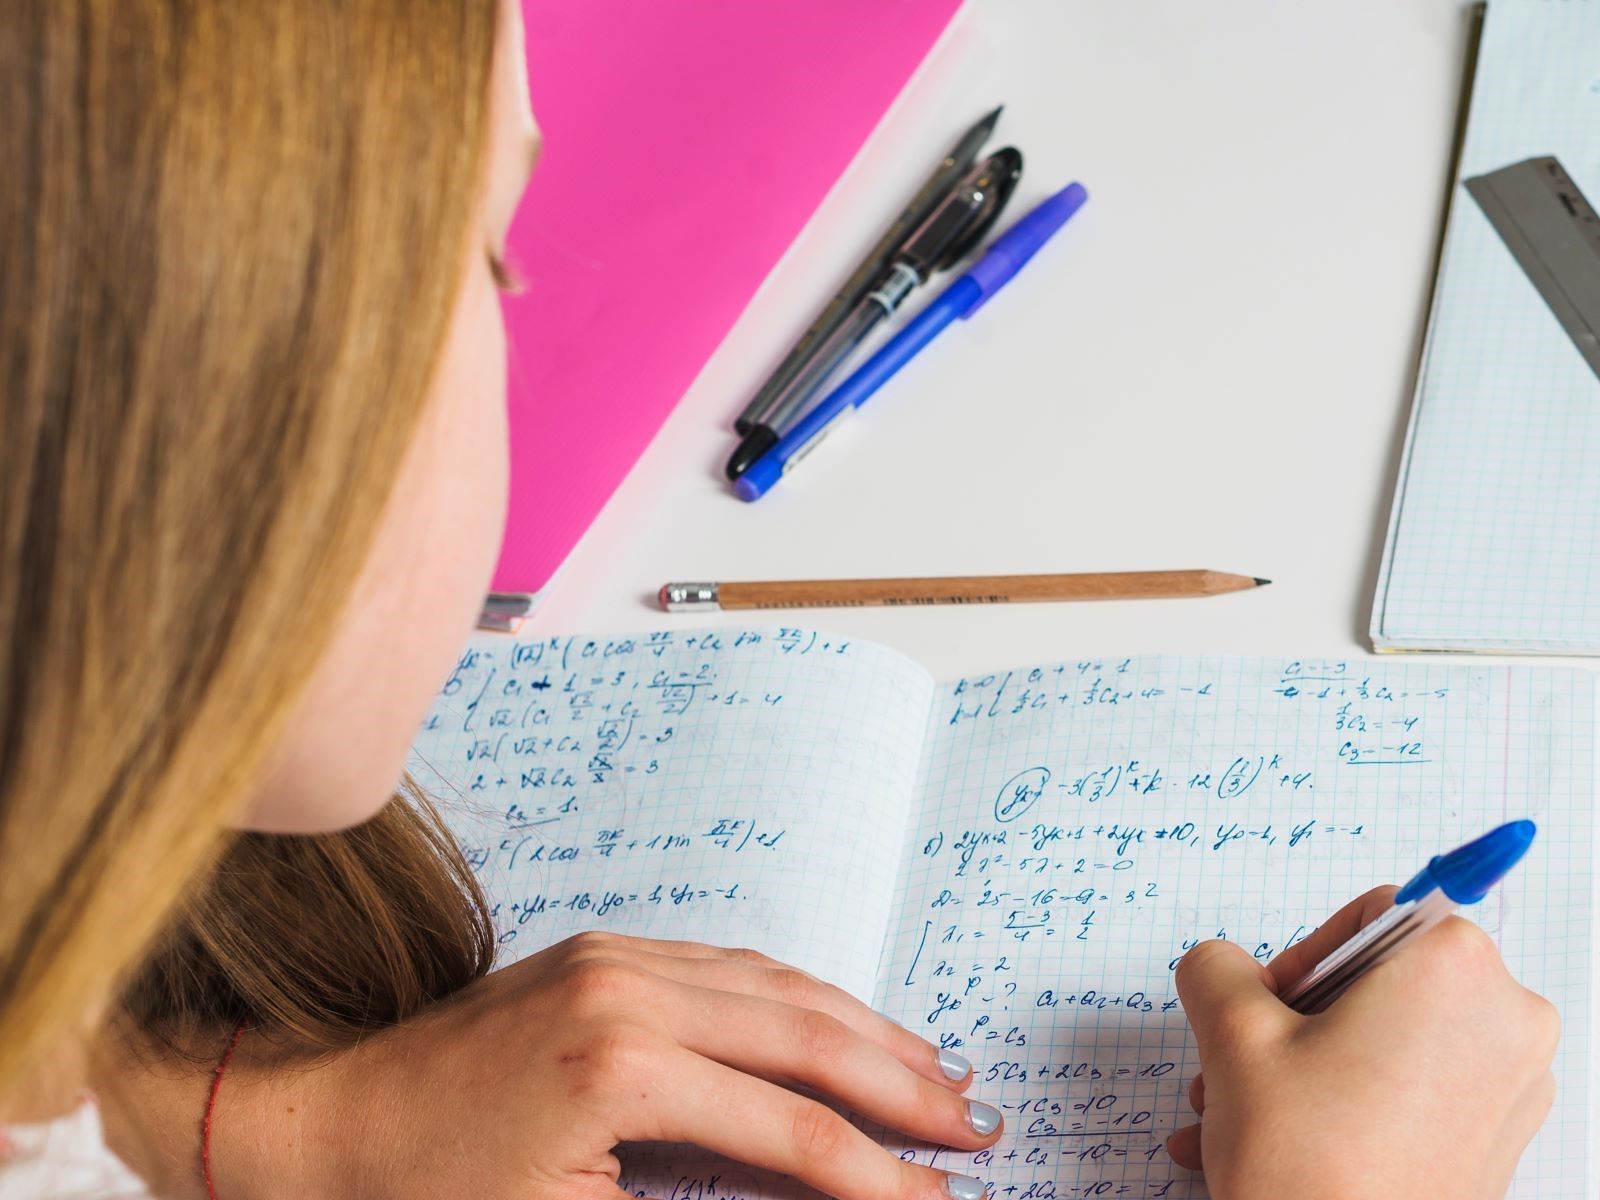 yk = (√2)^k (c₁ cos πk/4 + c₂ sin πk/4) + 1.
0 { c₁ + 1 = 3, c₁ = 2.
1 { √2 (c₁ √2/2 + c₂ √2/2) + 1 = 4
√2 (√2 + c₂ √2/2) = 3
2 + √2 c₂ √2/2 = 3
c₂ = 1.
(√2)^k (2 cos πk/4 + 1 sin πk/4) + 1.
1 + yk = 16, y₀ = 1, y₁ = -1.
0
k=0 { c₁ + 4 = 1
k=1 { 1/3 c₁ + 1/3 c₂ + 4 = -1
c₁ = -3
-1 + 1/3 c₂ = -5
1/3 c₂ = -4
c₂ = -12
yk = -3(1/3)^k + k · 12 (1/3)^k + 4.
б) 2yk+2 - 5yk+1 + 2yk = 10, y₀ = 1, y₁ = -1
2λ² - 5λ + 2 = 0
D = 25 - 16 = 9 = 3²
λ₁ = (5-3)/4 = 1/2
λ₂ = 2
y c₁ (
yk^p - ? a₁ + a₂ + a₃ ≠
yk^p = c₃
- 5c₃ + 2c₃ = 10
-1c₃ = 10
c₃ = -10
c₁ + c₂ - 10 = 1
+ 2c₂ - 10 = -1
(1)^k